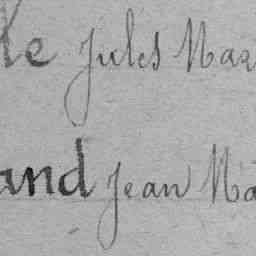 ke Jules Mar
and Jean Ma